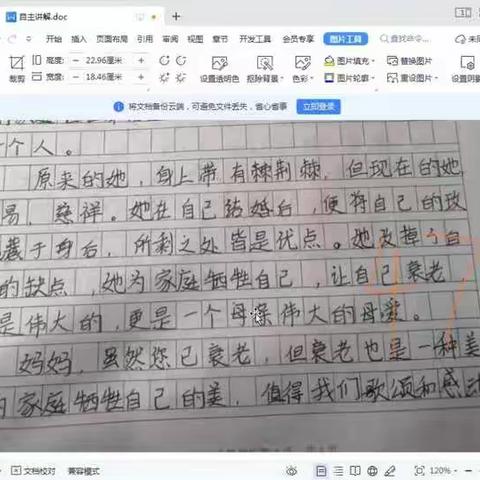 自主讲解.doc
开始 插入 页面布局 引用 审阅 视图 章节 开发工具 会员专享 图片工具 查找命令...
裁剪 高度: 22.96厘米 设置透明色 抠除背景 色彩 图片填充 替换图片
宽度: 18.46厘米 图片轮廓 重设图片
将文档备份云端,可避免文件丢失,省心省事 立即登录
个人。
原来的她,身上带有棘荆棘,但现在的她
易,慈祥。她在自己结婚后,便将自己的玫
藏于身后,所剩之处皆是优点。她改掉个自
的缺点,她为家庭牺牲自己,让自己衰老,
是伟大的,更是一个母亲伟大的母爱。
妈妈,虽然您已衰老,但衰老也是一种美
家庭牺牲自己的美,值得我们歌颂和感
文档校对 兼容模式 120%